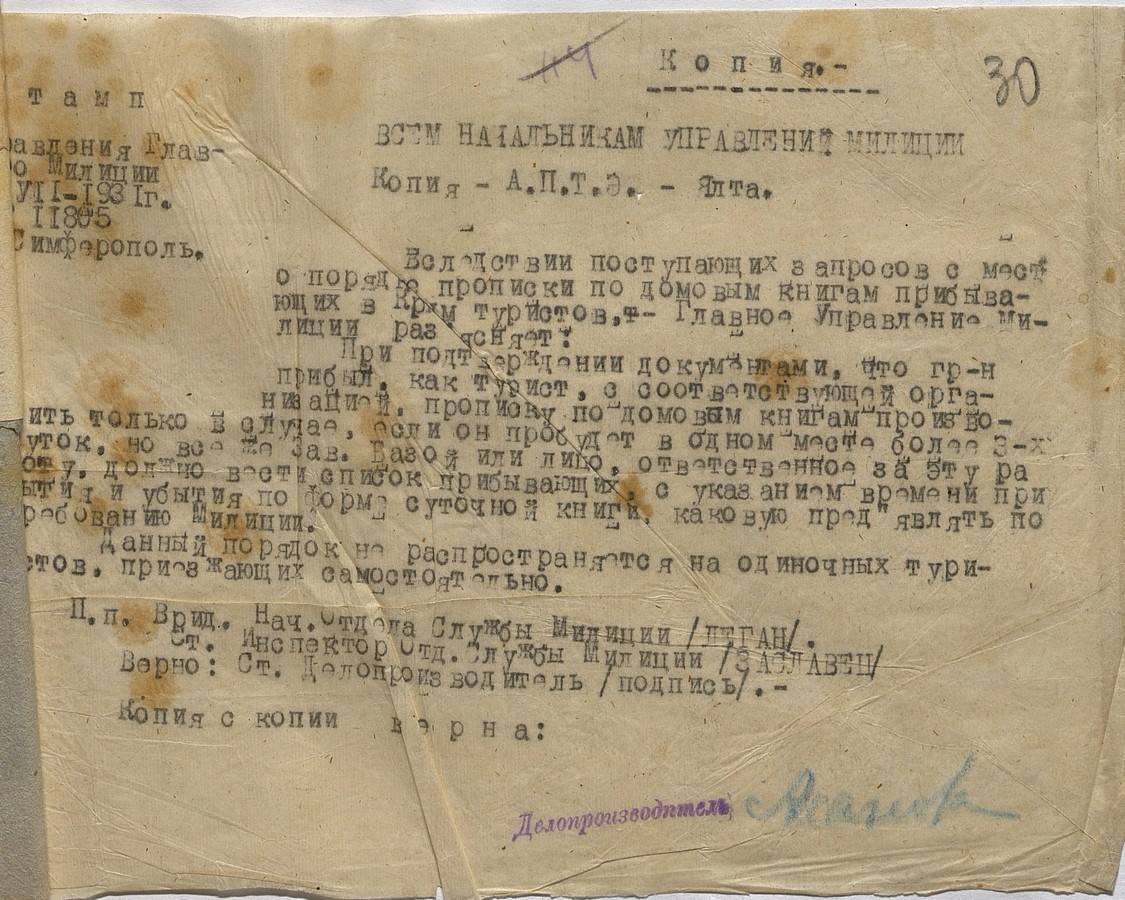 114
Копия.-
30
тамп
равления Глав-
ро Милиции
УII-1931г.
11805
Симферополь.
ВСЕМ НАЧАЛЬНИКАМ УПРАВЛЕНИЙ МИЛИЦИИ
Копия - А.П.Т.Э. - Ялта.
Вследствии поступающих запросов с мест
о порядке прописки по домовым книгам прибыва-
ющих в Крым туристов, - Главное Управление Ми-
лиции раз"ясняет:
При подтверждении документами, что гр-н
прибыл, как турист, с соответствующей орга-
низацией, прописку по домовым книгам произво-
ить только в случае, если он пробудет в одном месте более 3-х
уток, но все же Зав. Базой или лицо, ответственное за эту ра
оту, должно вести список прибывающих, с указанием времени при
ытия и убытия по форме суточной книги, каковую пред"являть по
ребованию Милиции.
Данный порядок не распространяется на одиночных тури-
стов, приезжающих самостоятельно.
П.п. Врид. Нач.Отдела Службы Милиции /ЛЕГАН/.
Ст. Инспектор Отд.Службы Милиции /ЗАСЛАВЕЦ/
Верно: Ст. Делопроизводитель /подпись/.-
Копия с копии верна:
Делопроизводитель